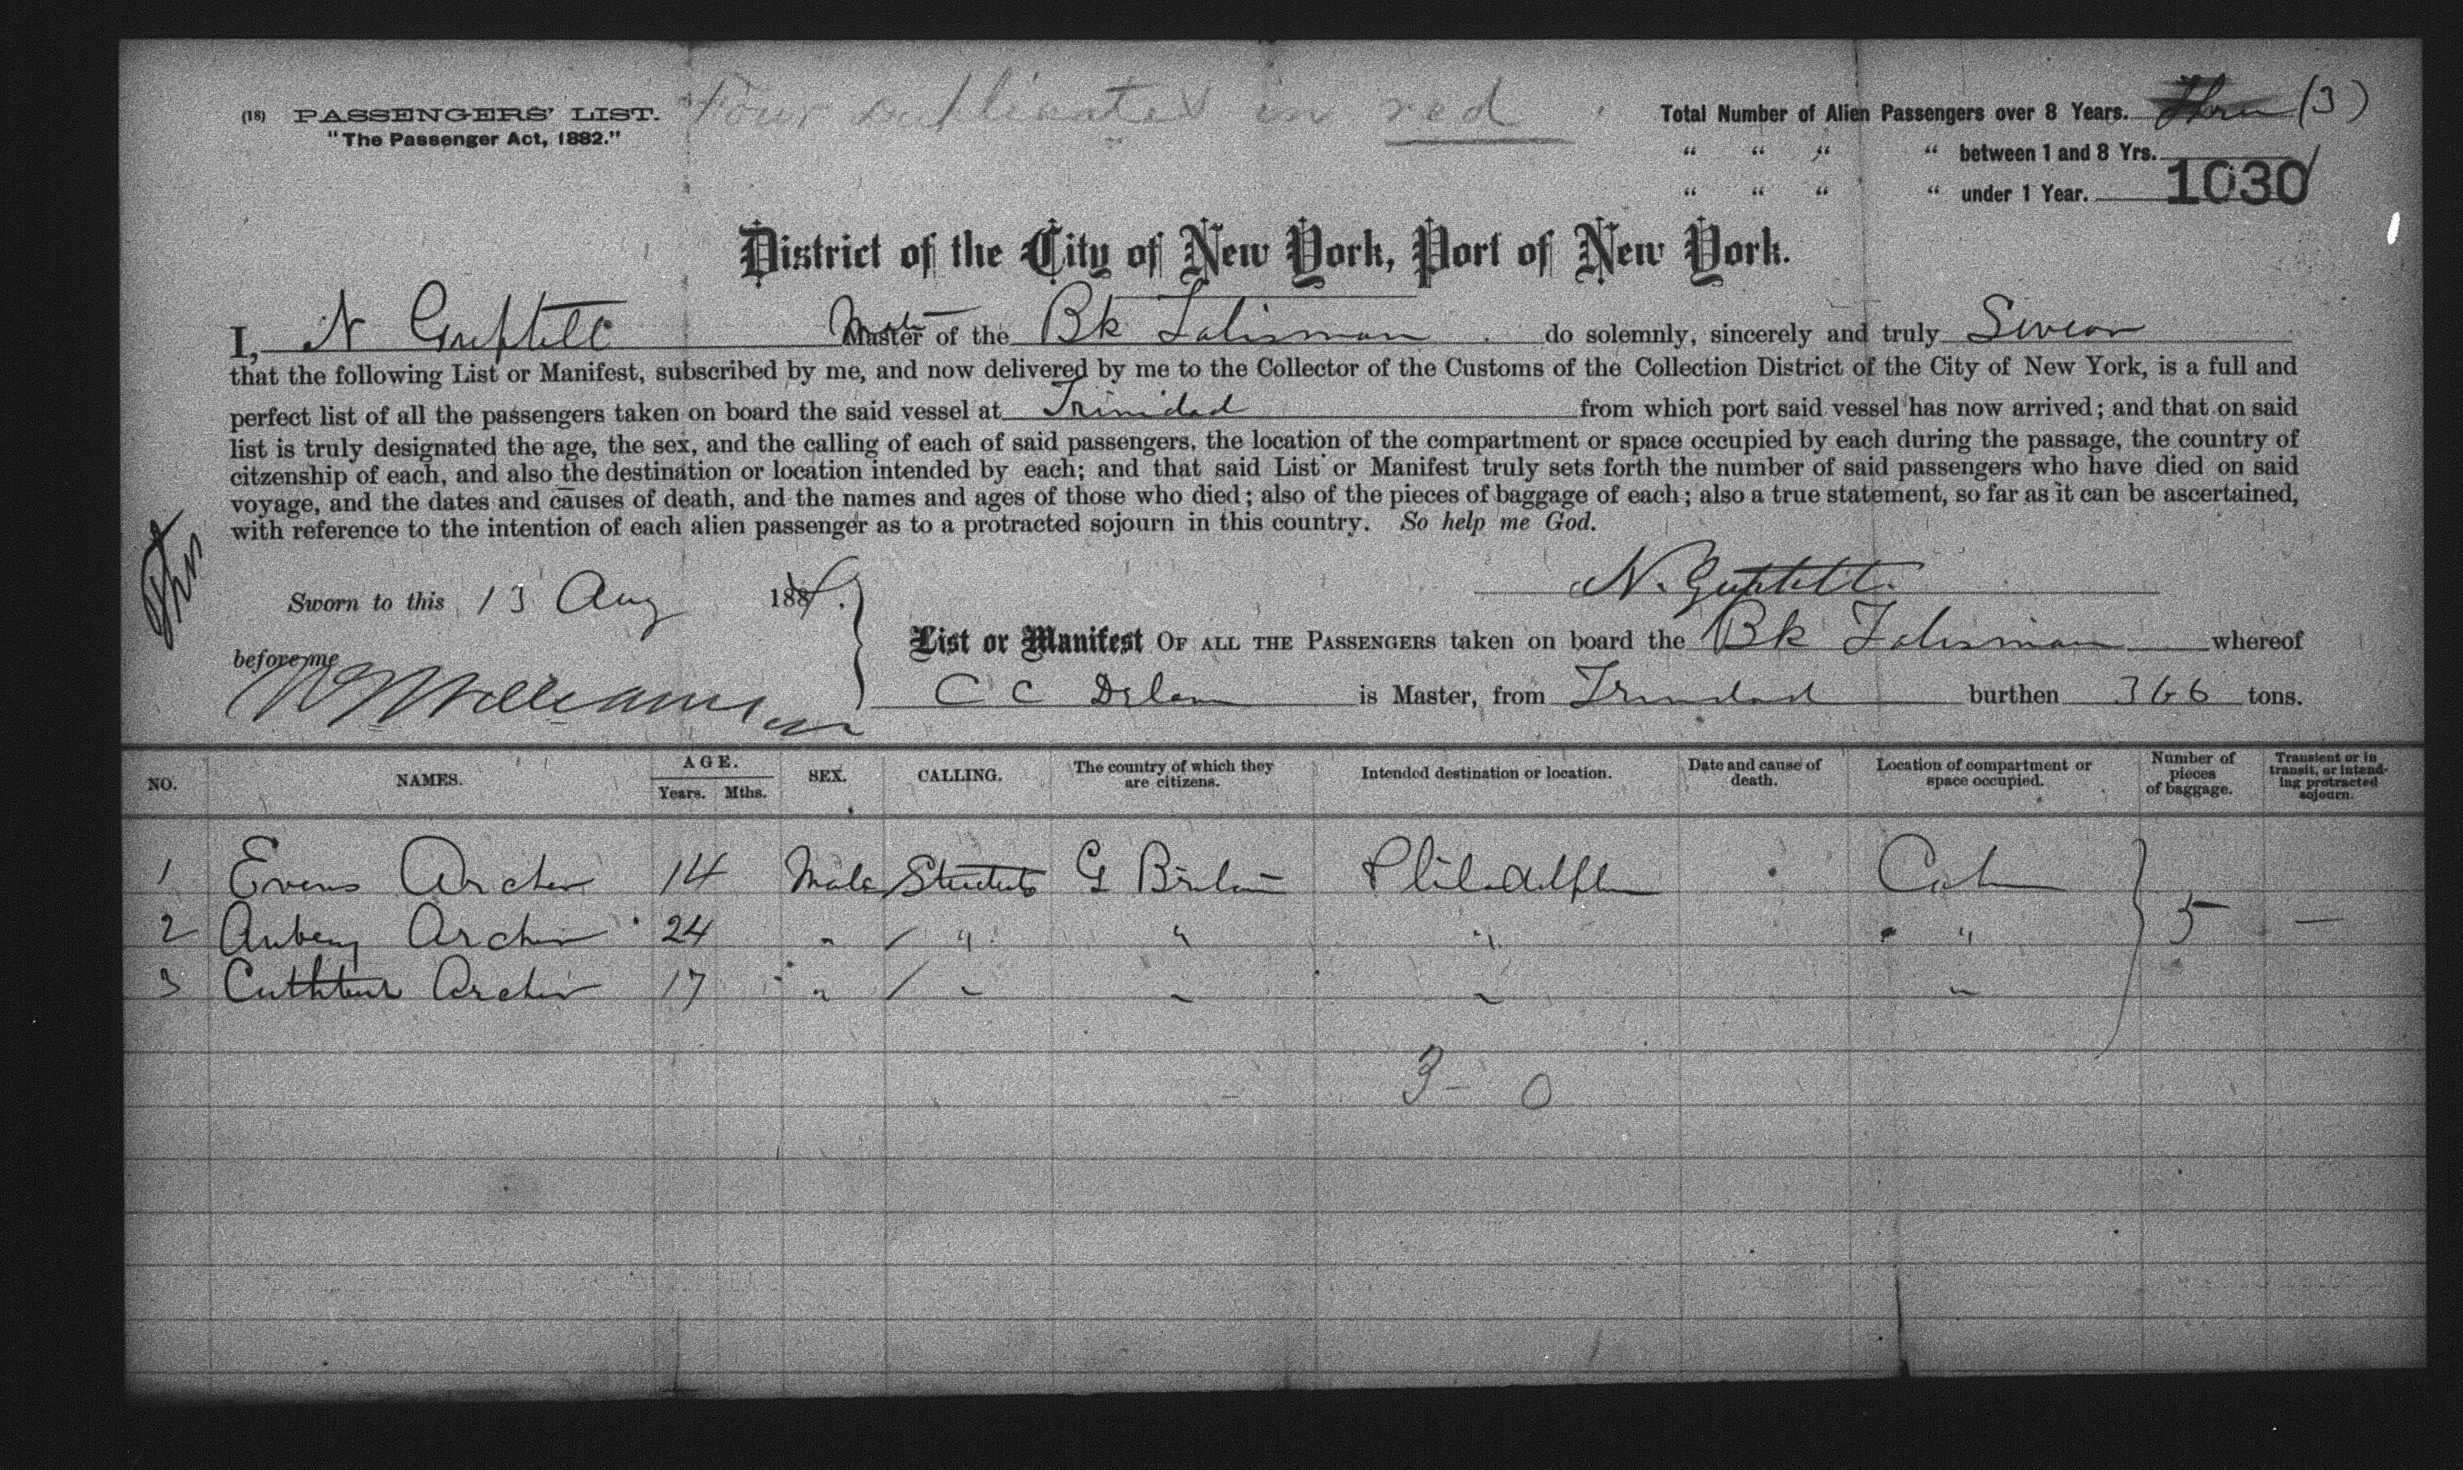 (18) PASSENGERS' LIST.
"The Passenger Act, 1882."
in red
Total Number of Alien Passengers over 8 Years. (3)
" " " " between 1 and 8 Yrs.
" " " " under 1 Year. 1030
District of the City of New York, Port of New York.
I, N Guptill Mate Master of the Bk Talisman do solemnly, sincerely and truly Swear
that the following List or Manifest, subscribed by me, and now delivered by me to the Collector of the Customs of the Collection District of the City of New York, is a full and
perfect list of all the passengers taken on board the said vessel at Trinidad from which port said vessel has now arrived; and that on said
list is truly designated the age, the sex, and the calling of each of said passengers, the location of the compartment or space occupied by each during the passage, the country of
citzenship of each, and also the destination or location intended by each; and that said List or Manifest truly sets forth the number of said passengers who have died on said
voyage, and the dates and causes of death, and the names and ages of those who died; also of the pieces of baggage of each; also a true statement, so far as it can be ascertained,
with reference to the intention of each alien passenger as to a protracted sojourn in this country. So help me God.
N. Guptill
Sworn to this 13 Aug 188
before me
List or Manifest OF ALL THE PASSENGERS taken on board the Bk Talisman whereof
C C is Master, from Trinidad burthen 366 tons.
NO. NAMES. AGE. Years. Mths. SEX. CALLING. The country of which they are citizens. Intended destination or location. Date and cause of death. Location of compartment or space occupied. Number of pieces of baggage. Transient or in transit, or intending protracted sojourn.
1 Evans Archer 14 Male Students G Britain Philadelphia Cabin
2 Aubery Archer 24 " " " " " 5 —
3 Cuthbert Archer 17 " " " " "
3 - 0